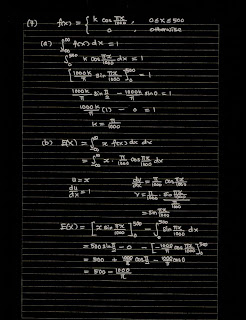 (7) f(x) = { k cos πx/1000 , 0≤x≤500
0 , otherwise
(a) ∫ f(x) dx = 1
∫ k cos πx/1000 dx = 1
[ 1000k/π sin πx/1000 ] = 1
1000k/π sin π/2 - 1000k/π sin 0 = 1
1000k/π (1) - 0 = 1
k = π/1000
(b) E(X) = ∫ x f(x) dx
= ∫ x . π/1000 cos πx/1000 dx
u = x dv/dx = π/1000 cos πx/1000
du/dx = 1 v = π/1000 sin πx/1000 / π/1000
= sin πx/1000
E(X) = [ x sin πx/1000 ] - ∫ sin πx/1000 dx
= 500 sin π/2 - 0 - [ - 1000/π cos πx/1000 ]
= 500 + 1000/π cos π/2 - 1000/π cos 0
= 500 - 1000/π